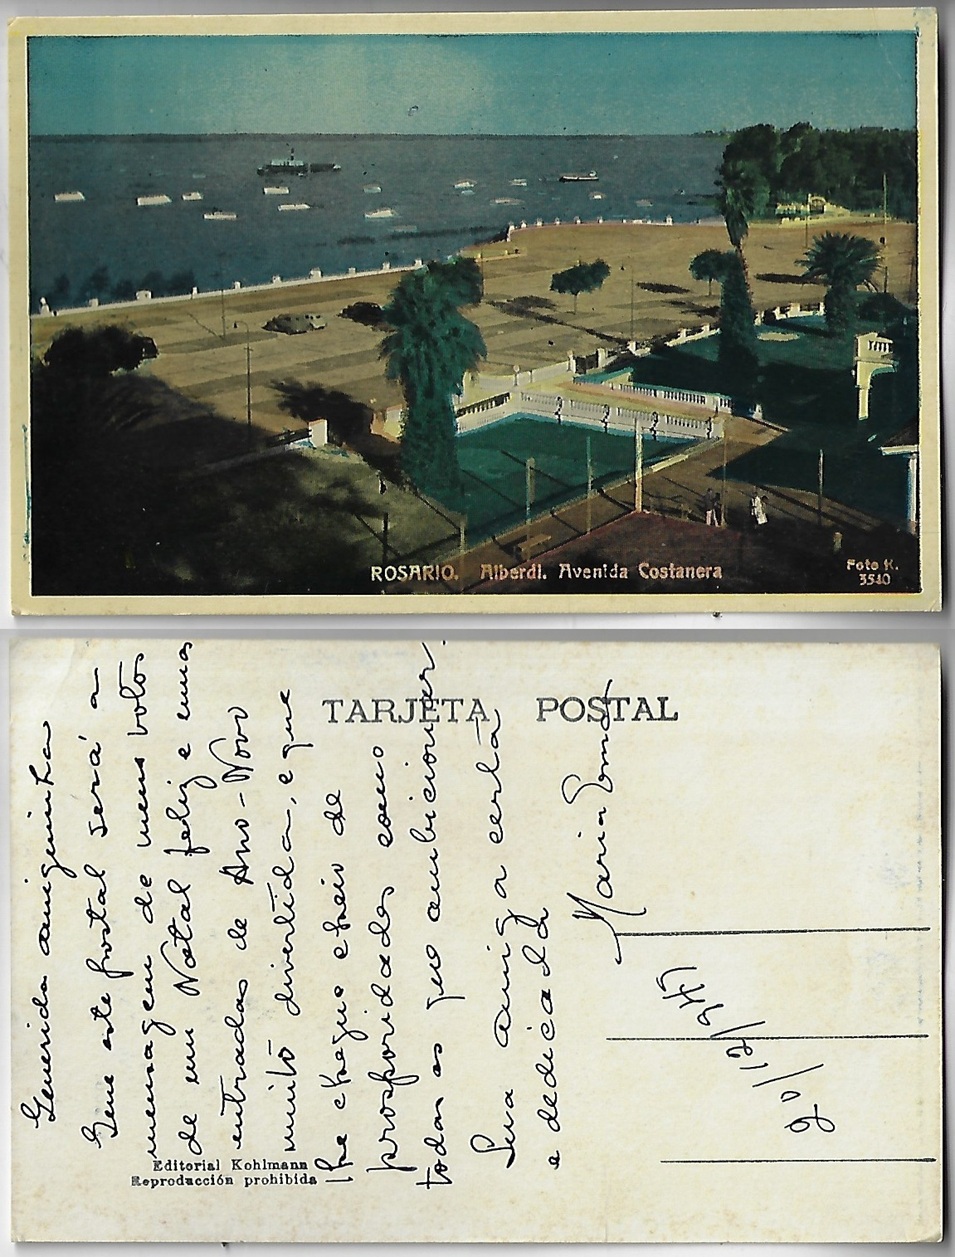 ROSARIO. Alberdi. Avenida Costanera
Foto K.
3540
TARJETA POSTAL
Querida amiguinha
Que este postal será a
mensagem de meus votos
de um Natal feliz e umas
entradas de Ano-Novo
muito divertida, e que
lhe chegue cheio de
prosperidades como
todas as que ambicionar.
Sua amiga certa
e dedicada
Maria
20/12/947
Editorial Kohlmann
Reproducción prohibida